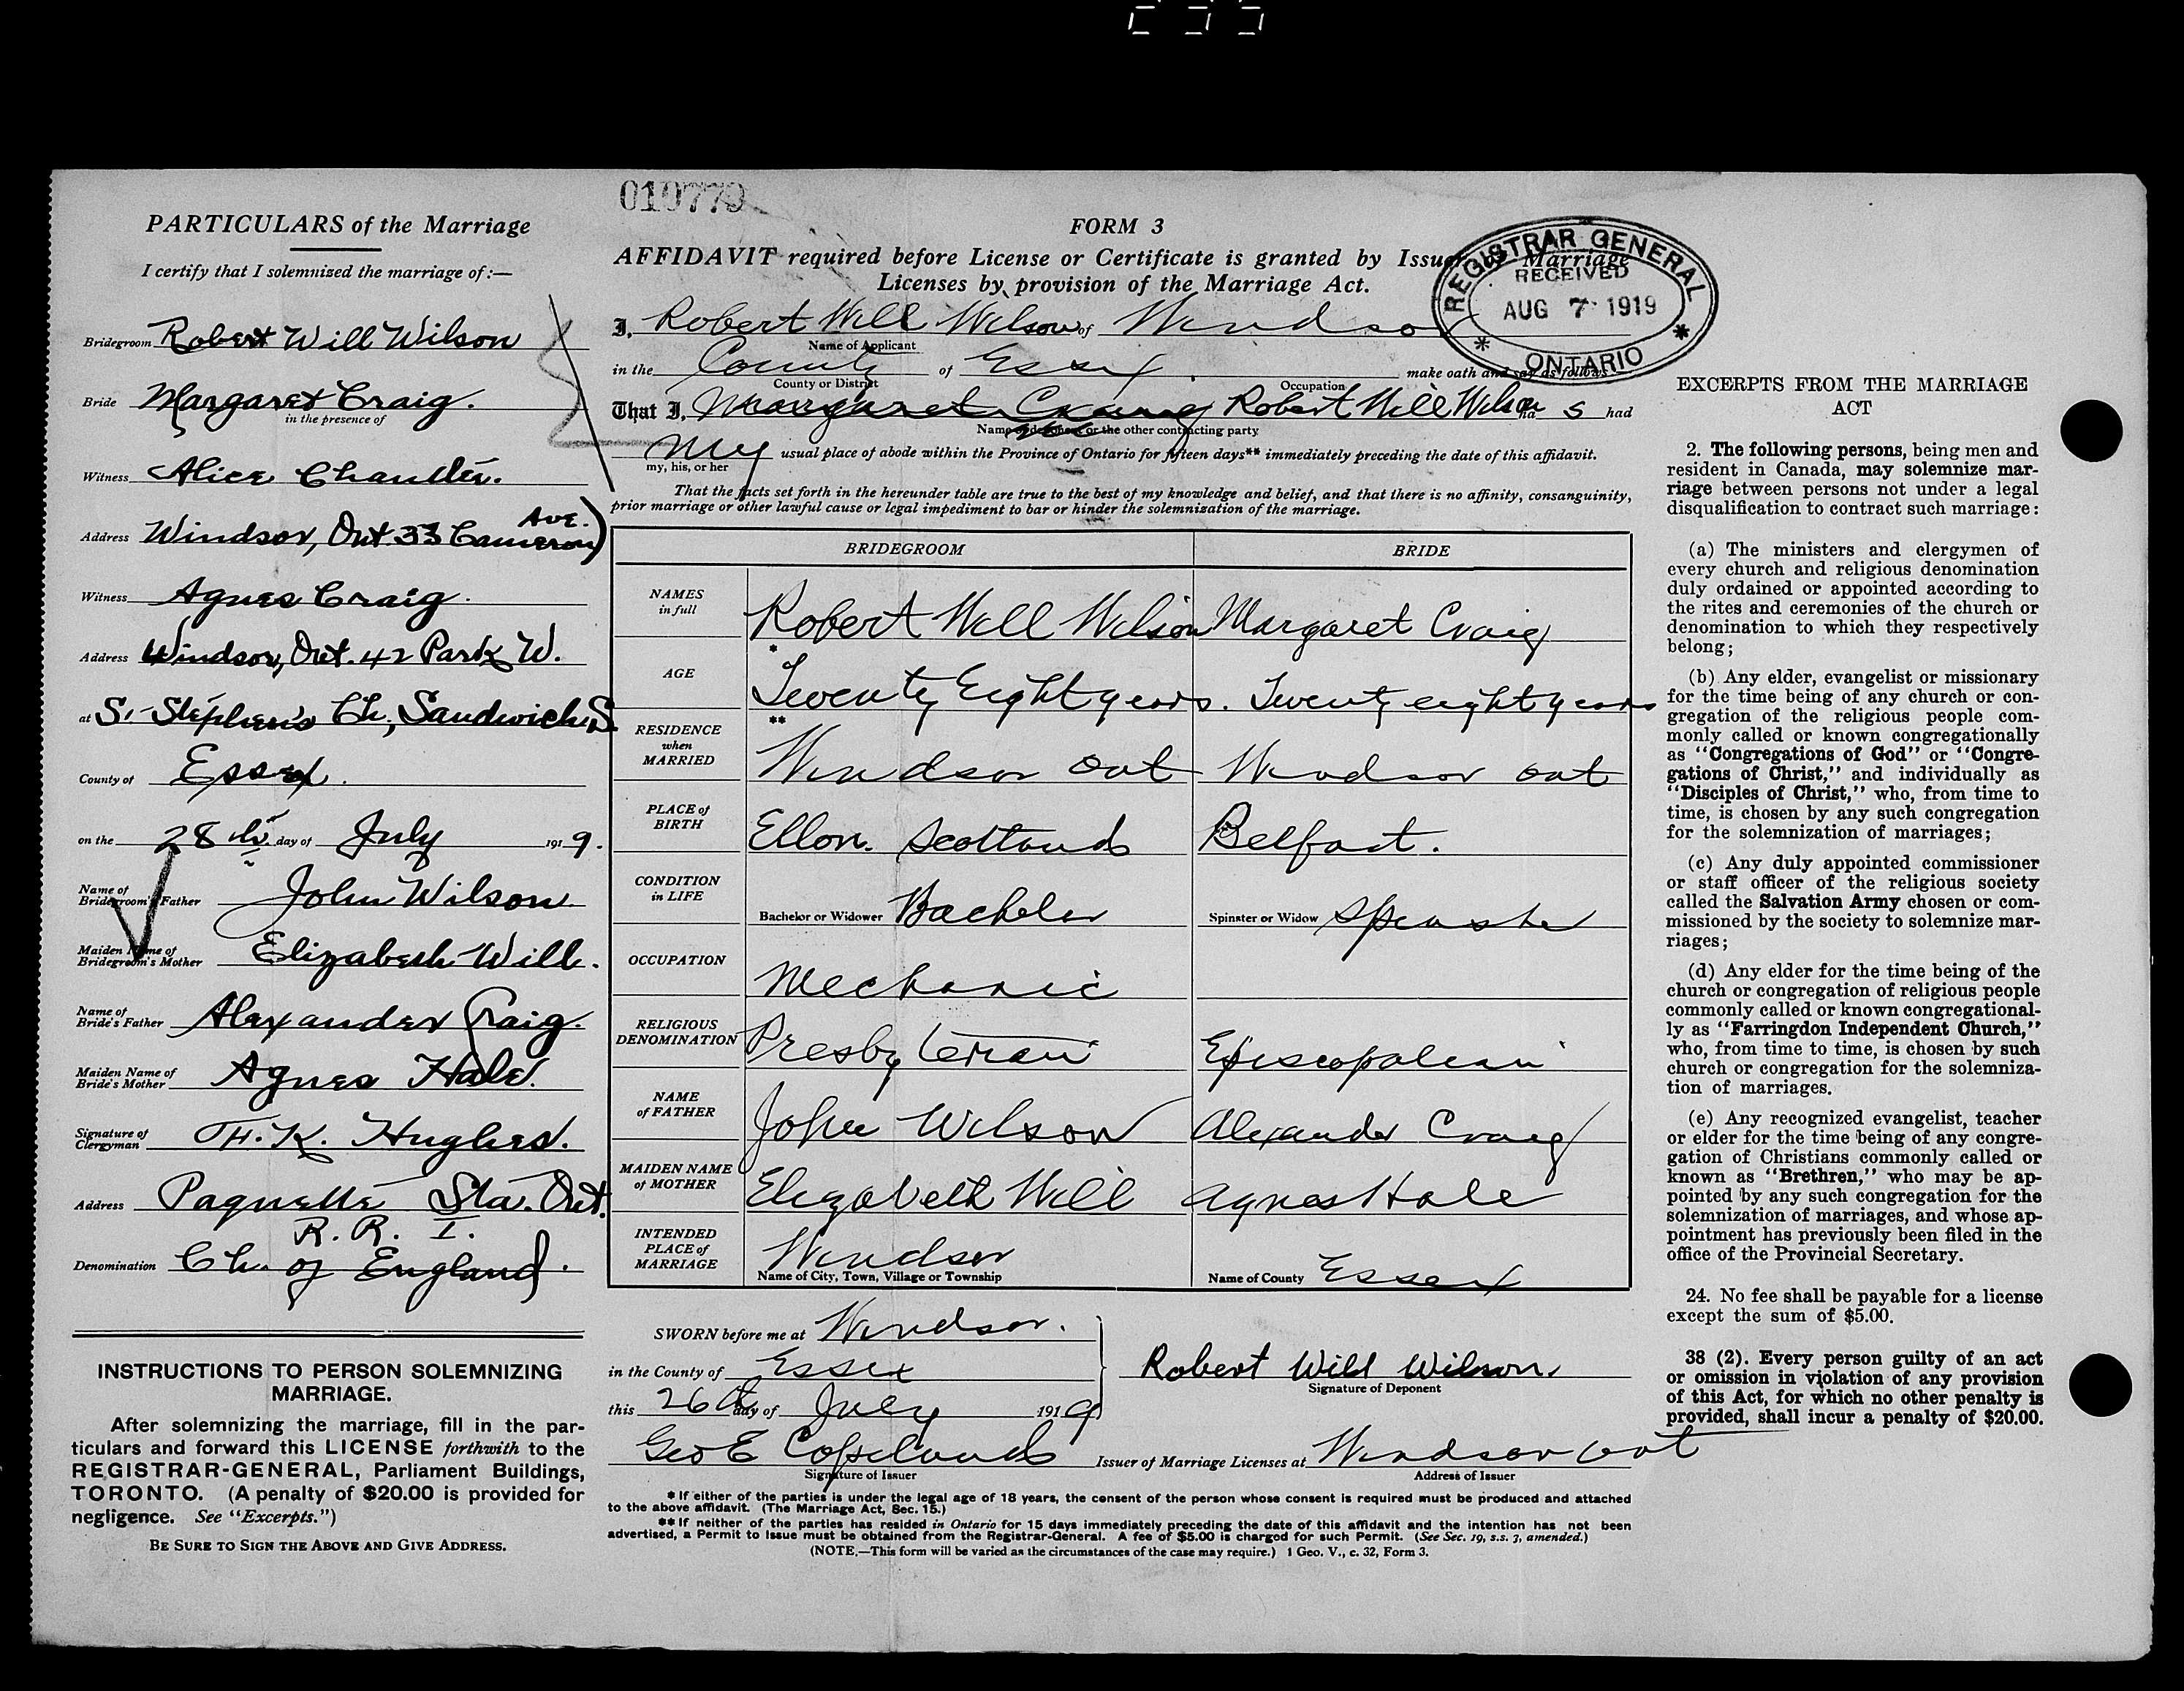 010779
PARTICULARS of the Marriage
I certify that I solemnized the marriage of:—
Bridegroom Robert Will Wilson
Bride Margaret Craig.
in the presence of
Witness Alice Chandler.
Address Windsor, Ont. 33 Cameron Ave.)
Witness Agnes Craig.
Address Windsor, Ont. 42 Park W.
at St. Stephen's Ch., Sandwich S.
County of Essex.
on the 28th day of July 1919.
Name of Bridegroom's Father John Wilson.
Maiden Name of Bridegroom's Mother Elizabeth Will.
Name of Bride's Father Alexander Craig.
Maiden Name of Bride's Mother Agnes Hale.
Signature of Clergyman H. K. Hughes.
Address Paquette Sta. Ont.
R. R. I.
Denomination Ch. of England.
INSTRUCTIONS TO PERSON SOLEMNIZING
MARRIAGE.
After solemnizing the marriage, fill in the par-
ticulars and forward this LICENSE forthwith to the
REGISTRAR-GENERAL, Parliament Buildings,
TORONTO. (A penalty of $20.00 is provided for
negligence. See "Excerpts.")
BE SURE TO SIGN THE ABOVE AND GIVE ADDRESS.
FORM 3
AFFIDAVIT required before License or Certificate is granted by Issuer of Marriage
Licenses by provision of the Marriage Act.
REGISTRAR GENERAL
RECEIVED
AUG 7 1919
* ONTARIO *
I, Robert Will Wilson of Windsor
Name of Applicant
in the County of Essex. make oath and say as follows
County or District Occupation
That I, Margaret Craig Robert Will Wilson ha s had
Name of deponent or the other contracting party
My usual place of abode within the Province of Ontario for fifteen days** immediately preceding the date of this affidavit.
my, his, or her
That the facts set forth in the hereunder table are true to the best of my knowledge and belief, and that there is no affinity, consanguinity,
prior marriage or other lawful cause or legal impediment to bar or hinder the solemnization of the marriage.
BRIDEGROOM BRIDE
NAMES in full Robert Will Wilson Margaret Craig
AGE * Twenty Eight years. Twenty eight years
RESIDENCE when MARRIED ** Windsor Ont Windsor Ont
PLACE of BIRTH Ellon. Scotland Belfast.
CONDITION in LIFE Bachelor or Widower Bachelor Spinster or Widow Spinster
OCCUPATION Mechanic
RELIGIOUS DENOMINATION Presbyterian Episcopalian
NAME of FATHER John Wilson Alexander Craig
MAIDEN NAME of MOTHER Elizabeth Will Agnes Hale
INTENDED PLACE of MARRIAGE Windsor Name of County Essex
Name of City, Town, Village or Township
SWORN before me at Windsor.
in the County of Essex
this 26th day of July 1919
Robert Will Wilson.
Signature of Deponent
Geo E Copeland Issuer of Marriage Licenses at Windsor Ont
Signature of Issuer Address of Issuer
* If either of the parties is under the legal age of 18 years, the consent of the person whose consent is required must be produced and attached
to the above affidavit. (The Marriage Act, Sec. 15.)
** If neither of the parties has resided in Ontario for 15 days immediately preceding the date of this affidavit and the intention has not been
advertised, a Permit to Issue must be obtained from the Registrar-General. A fee of $5.00 is charged for such Permit. (See Sec. 19, s.s. 3, amended.)
(NOTE.—This form will be varied as the circumstances of the case may require.) 1 Geo. V., c. 32, Form 3.
EXCERPTS FROM THE MARRIAGE
ACT
2. The following persons, being men and
resident in Canada, may solemnize mar-
riage between persons not under a legal
disqualification to contract such marriage:
(a) The ministers and clergymen of
every church and religious denomination
duly ordained or appointed according to
the rites and ceremonies of the church or
denomination to which they respectively
belong;
(b) Any elder, evangelist or missionary
for the time being of any church or con-
gregation of the religious people com-
monly called or known congregationally
as "Congregations of God" or "Congre-
gations of Christ," and individually as
"Disciples of Christ," who, from time to
time, is chosen by any such congregation
for the solemnization of marriages;
(c) Any duly appointed commissioner
or staff officer of the religious society
called the Salvation Army chosen or com-
missioned by the society to solemnize mar-
riages;
(d) Any elder for the time being of the
church or congregation of religious people
commonly called or known congregational-
ly as "Farringdon Independent Church,"
who, from time to time, is chosen by such
church or congregation for the solemniza-
tion of marriages.
(e) Any recognized evangelist, teacher
or elder for the time being of any congre-
gation of Christians commonly called or
known as "Brethren," who may be ap-
pointed by any such congregation for the
solemnization of marriages, and whose ap-
pointment has previously been filed in the
office of the Provincial Secretary.
24. No fee shall be payable for a license
except the sum of $5.00.
38 (2). Every person guilty of an act
or omission in violation of any provision
of this Act, for which no other penalty is
provided, shall incur a penalty of $20.00.